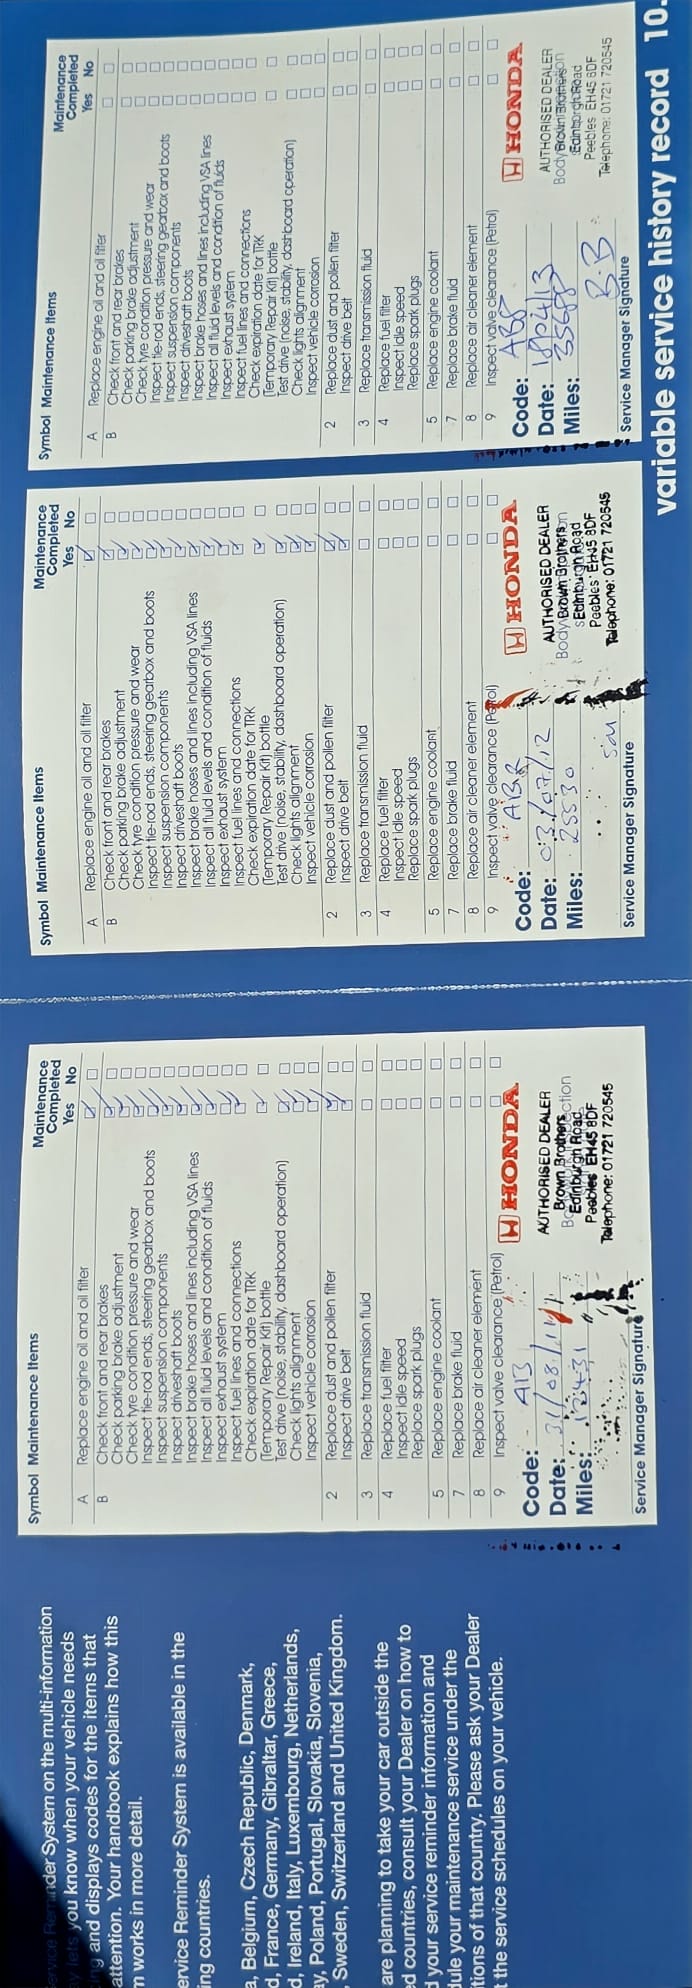 Service Reminder System on the multi-information
lets you know when your vehicle needs
and displays codes for the items that
attention. Your handbook explains how this
works in more detail.
Service Reminder System is available in the
ing countries.
Belgium, Czech Republic, Denmark,
France, Germany, Gibraltar, Greece,
Ireland, Italy, Luxembourg, Netherlands,
Poland, Portugal, Slovakia, Slovenia,
Sweden, Switzerland and United Kingdom.
are planning to take your car outside the
countries, consult your Dealer on how to
your service reminder information and
your maintenance service under the
tions of that country. Please ask your Dealer
the service schedules on your vehicle.
Symbol Maintenance Items
Maintenance
Completed
Yes No
A Replace engine oil and oil filter
B Check front and rear brakes
Check parking brake adjustment
Check tyre condition pressure and wear
Inspect tie-rod ends, steering gearbox and boots
Inspect suspension components
Inspect driveshaft boots
Inspect brake hoses and lines including VSA lines
Inspect all fluid levels and condition of fluids
Inspect exhaust system
Inspect fuel lines and connections
Check expiration date for TRK
(Temporary Repair Kit) bottle
Test drive (noise, stability, dashboard operation)
Check lights alignment
Inspect vehicle corrosion
2 Replace dust and pollen filter
Inspect drive belt
3 Replace transmission fluid
4 Replace fuel filter
Inspect idle speed
Replace spark plugs
5 Replace engine coolant
7 Replace brake fluid
8 Replace air cleaner element
9 Inspect valve clearance (Petrol)
Code:
Date: 31/08/11
Miles: 12431
HONDA
AUTHORISED DEALER
Brown Brothers
Edinburgh Road
Peebles EH45 8DF
Telephone: 01721 720545
Service Manager Signature
Symbol Maintenance Items
Maintenance
Completed
Yes No
A Replace engine oil and oil filter
B Check front and rear brakes
Check parking brake adjustment
Check tyre condition pressure and wear
Inspect tie-rod ends, steering gearbox and boots
Inspect suspension components
Inspect driveshaft boots
Inspect brake hoses and lines including VSA lines
Inspect all fluid levels and condition of fluids
Inspect exhaust system
Inspect fuel lines and connections
Check expiration date for TRK
(Temporary Repair Kit) bottle
Test drive (noise, stability, dashboard operation)
Check lights alignment
Inspect vehicle corrosion
2 Replace dust and pollen filter
Inspect drive belt
3 Replace transmission fluid
4 Replace fuel filter
Inspect idle speed
Replace spark plugs
5 Replace engine coolant
7 Replace brake fluid
8 Replace air cleaner element
9 Inspect valve clearance (Petrol)
Code:
Date: 03/07/12
Miles: 25530
HONDA
AUTHORISED DEALER
Brown Brothers
Edinburgh Road
Peebles EH45 8DF
Telephone: 01721 720545
Service Manager Signature
Symbol Maintenance Items
Maintenance
Completed
Yes No
A Replace engine oil and oil filter
B Check front and rear brakes
Check parking brake adjustment
Check tyre condition pressure and wear
Inspect tie-rod ends, steering gearbox and boots
Inspect suspension components
Inspect driveshaft boots
Inspect brake hoses and lines including VSA lines
Inspect all fluid levels and condition of fluids
Inspect exhaust system
Inspect fuel lines and connections
Check expiration date for TRK
(Temporary Repair Kit) bottle
Test drive (noise, stability, dashboard operation)
Check lights alignment
Inspect vehicle corrosion
2 Replace dust and pollen filter
Inspect drive belt
3 Replace transmission fluid
4 Replace fuel filter
Inspect idle speed
Replace spark plugs
5 Replace engine coolant
7 Replace brake fluid
8 Replace air cleaner element
9 Inspect valve clearance (Petrol)
Code:
Date:
Miles:
B.B
HONDA
AUTHORISED DEALER
Brown Brothers
Edinburgh Road
Peebles EH45 8DF
Telephone: 01721 720545
Service Manager Signature
variable service history record 10.